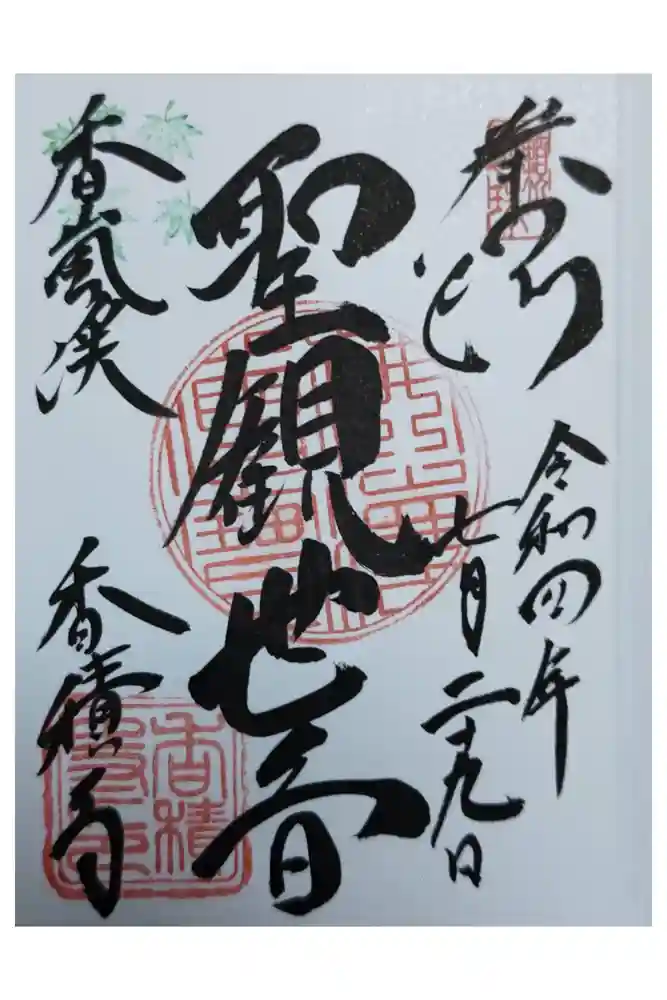 令和四年
七月二十九日
聖観世音
香嵐渓
香積寺
香積